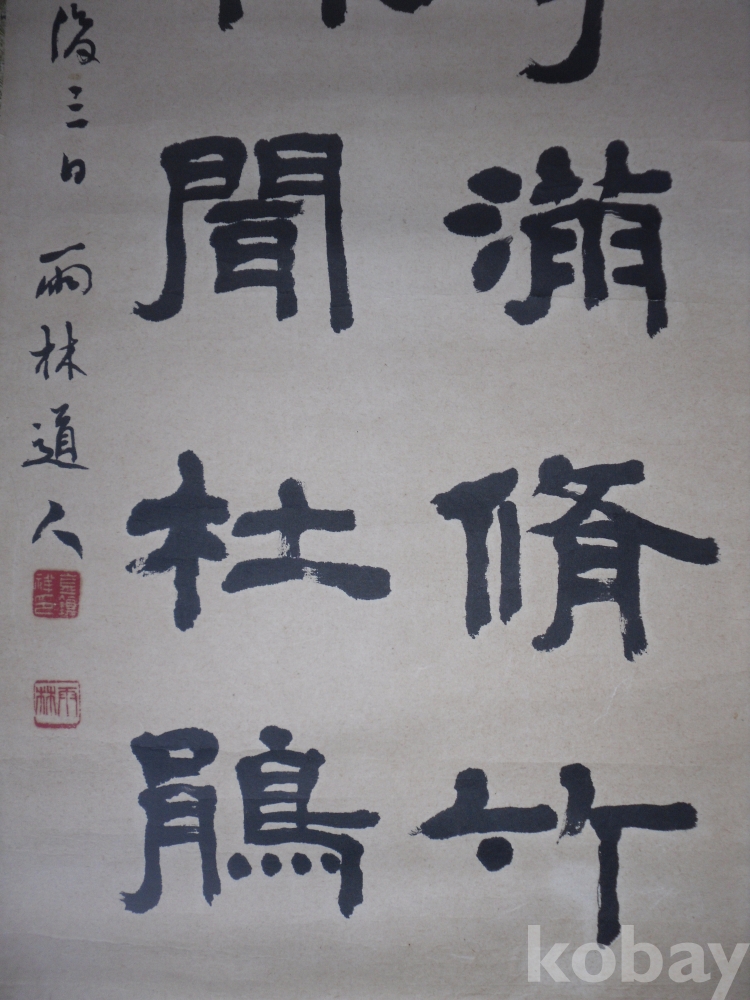 滿脩竹
聞杜鵑
後三日 雨林道人
雨林
kobay